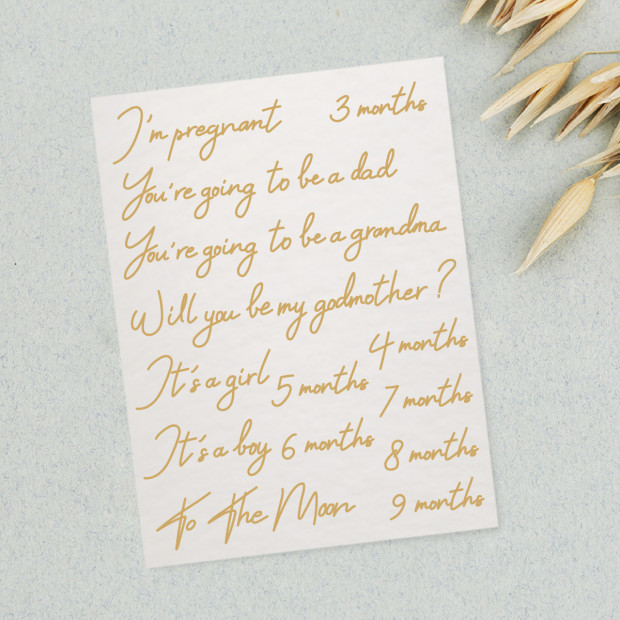 I'm pregnant 3 months
You're going to be a dad
You're going to be a grandma
Will you be my godmother ?
4 months
It's a girl 5 months 7 months
It's a boy 6 months 8 months
To The Moon 9 months